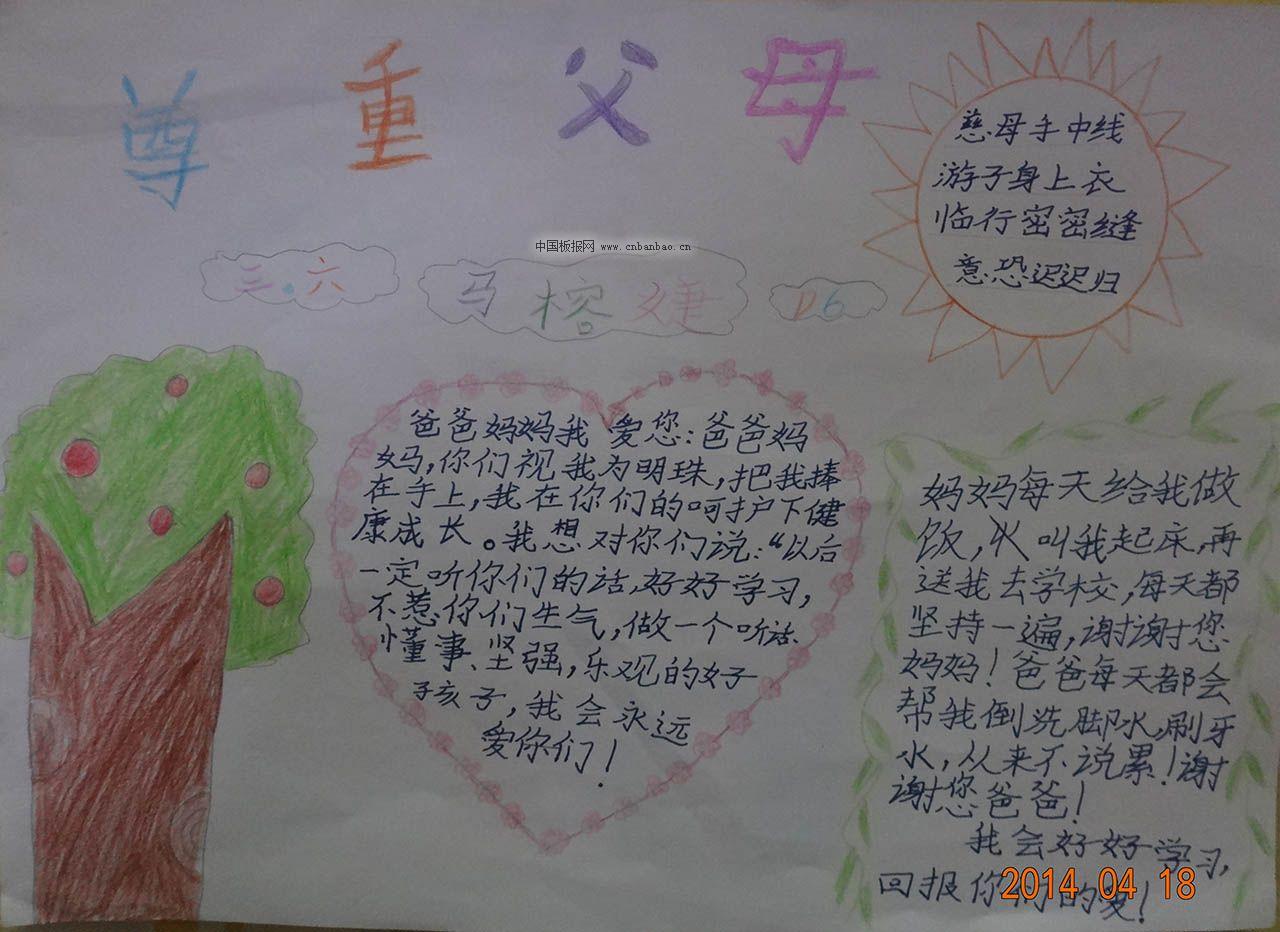 尊重父母
慈母手中线
游子身上衣
临行密密缝
意恐迟迟归
中国板报网 www.cnbanbao.cn
三.六
马榕婕
26
爸爸妈妈我爱您:爸爸妈
妈,你们视我为明珠,把我捧
在手上,我在你们的呵护下健
康成长。我想对你们说:“以后
一定听你们的话,好好学习,
不惹你们生气,做一个听话、
懂事、坚强,乐观的好
孩子,我会永远
爱你们!
妈妈每天给我做
饭,叫我起床,再
送我去学校,每天都
坚持一遍,谢谢您
妈妈!爸爸每天都会
帮我倒洗脚水,刷牙
水,从来不说累!谢
谢您爸爸!
我会好好学习,
回报你们的爱!
2014 04 18